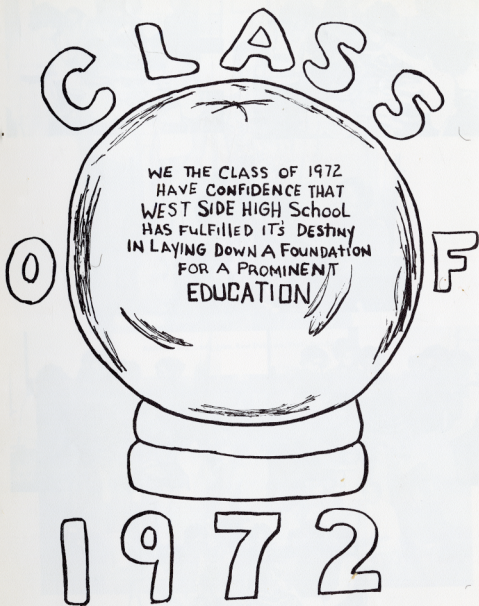 CLASS
OF
WE THE CLASS OF 1972
HAVE CONFIDENCE THAT
WEST SIDE HIGH School
HAS FULFILLED IT'S DESTINY
IN LAYING DOWN A FOUNDATION
FOR A PROMINENT
EDUCATION
1972